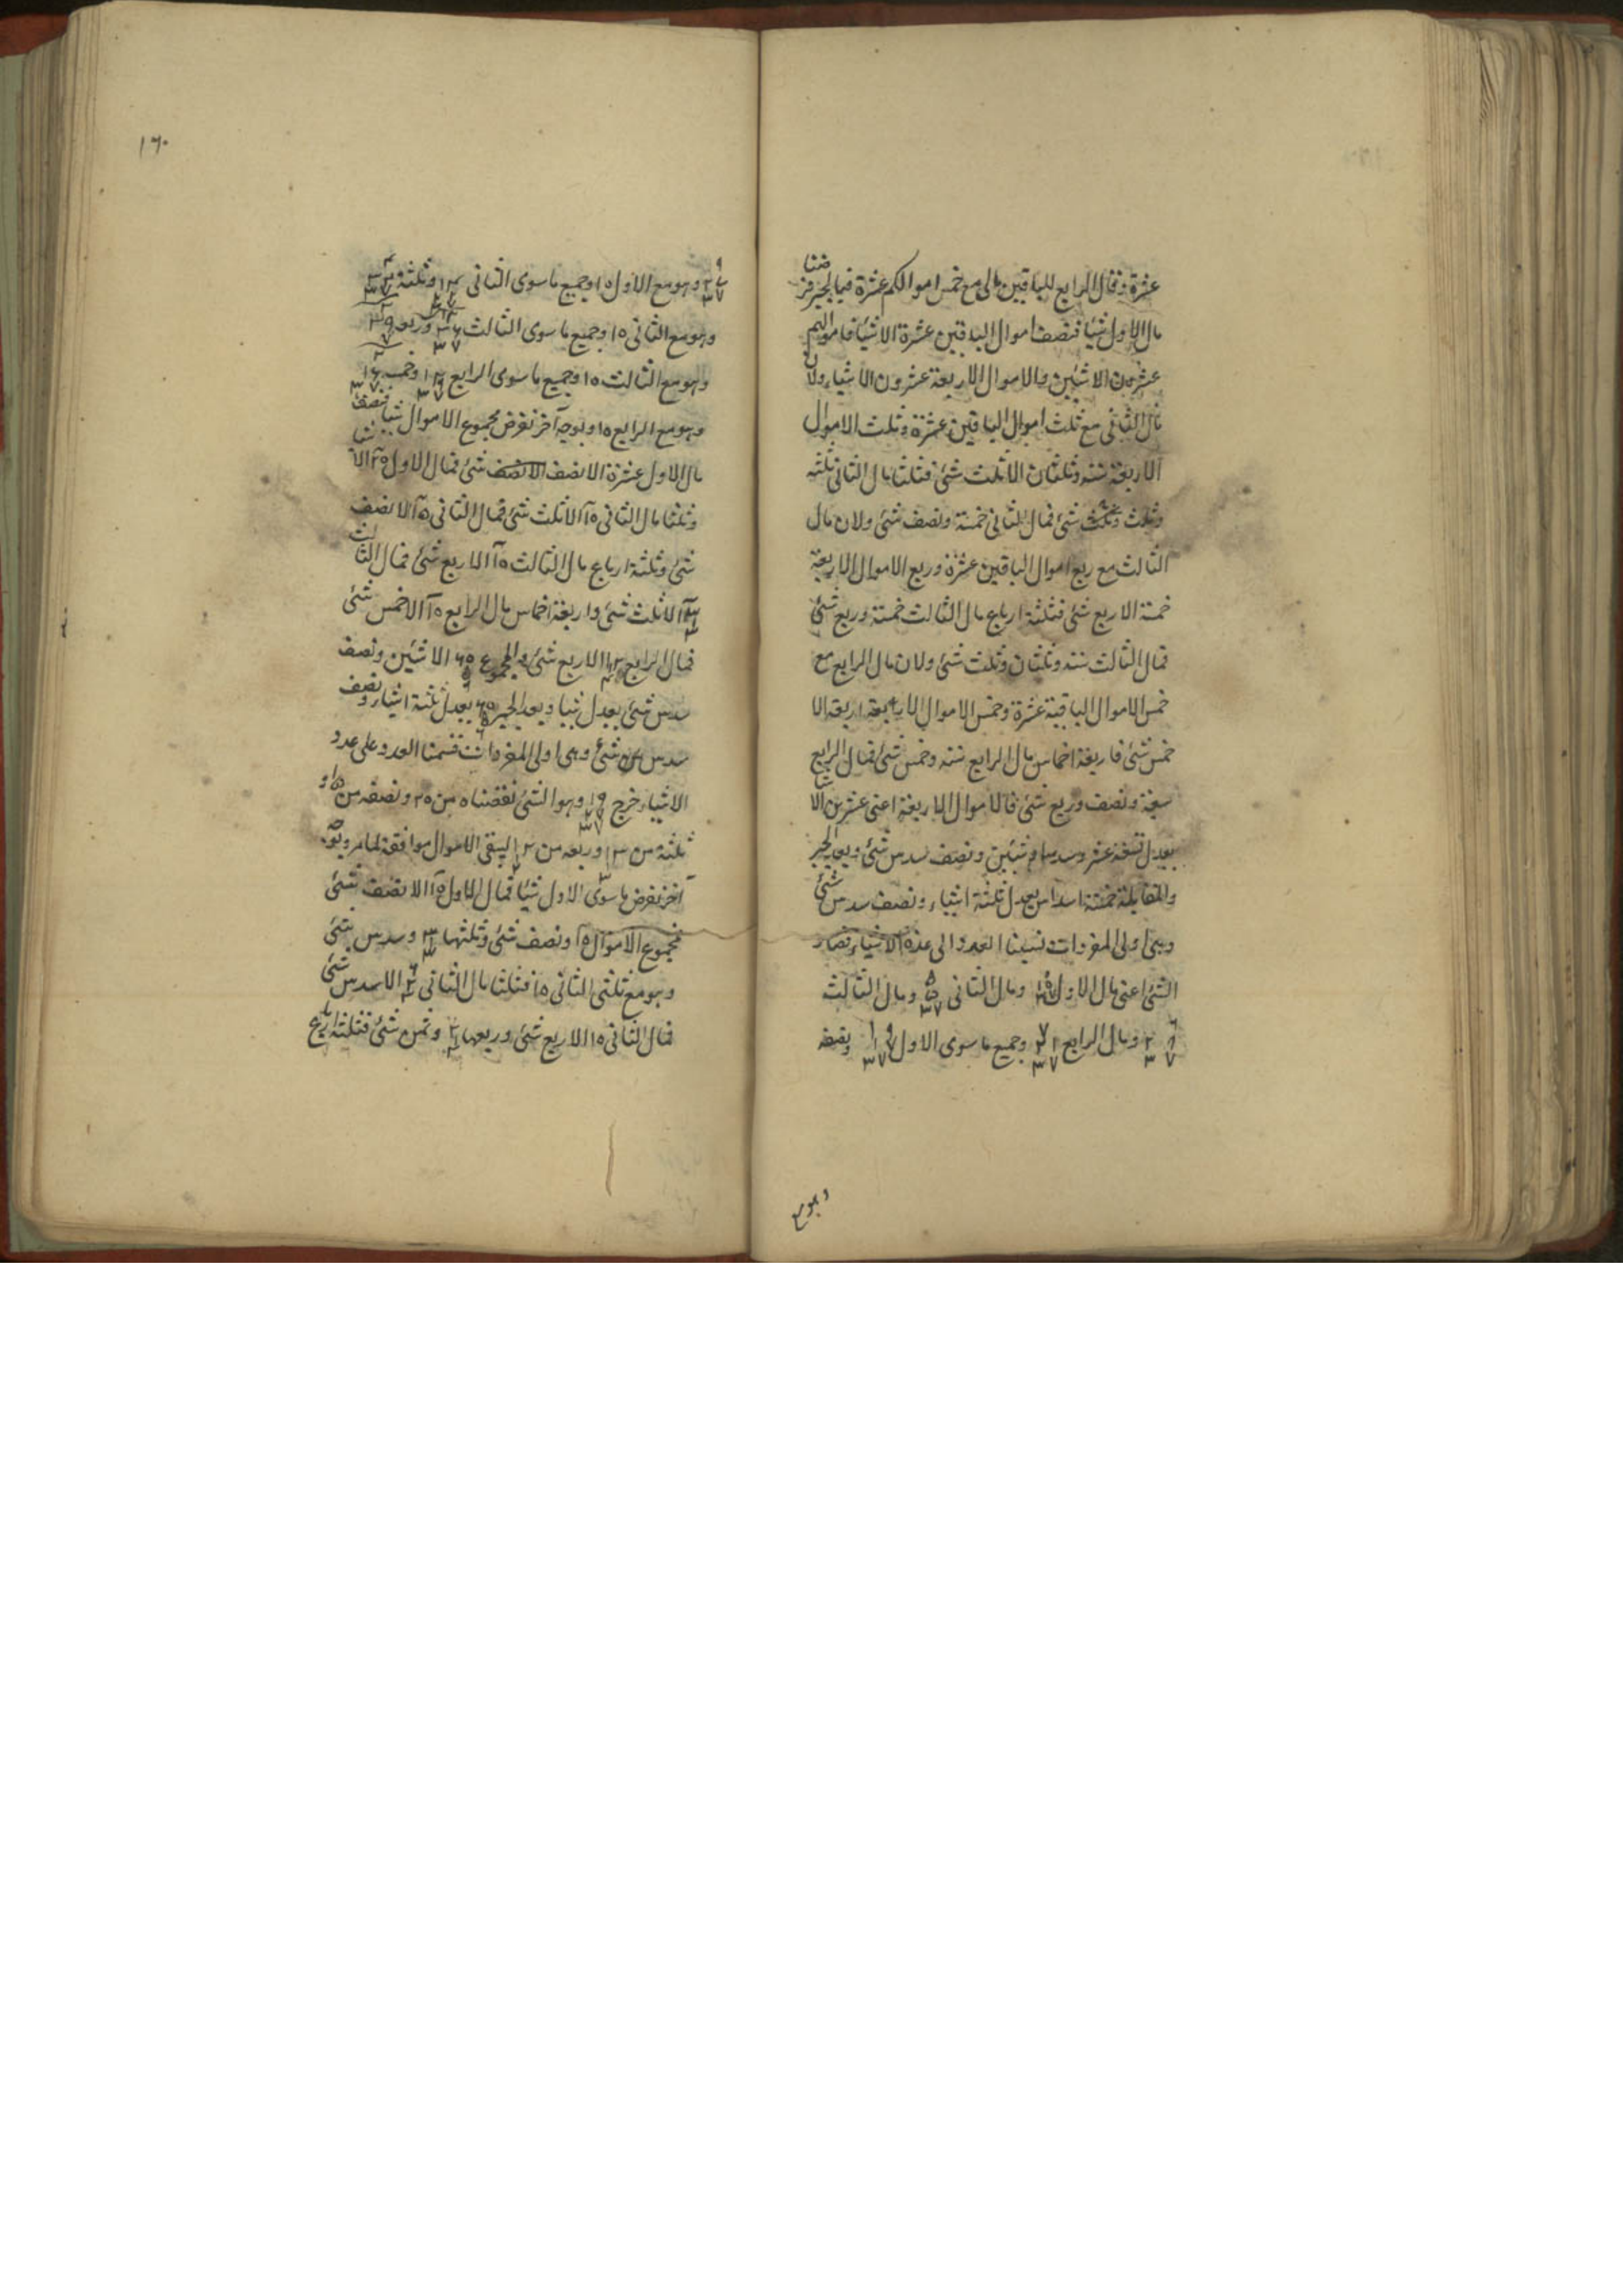 عشرة وقال الرابع للباقين مالی مع خمس اموالكم عشرة فبالجبر فرضنا
مال الاول شيئا فنصف اموال الباقين عشرة الا شيئا فاموالهم
عشرون الا شيئين والاموال الاربعة عشرون الا شيئا ولان
مال الثانی مع ثلث اموال الباقين عشرة وثلث الاموال
الاربعة ستة وثلثان الا ثلث شئ فثلثا مال الثانی ثلثه
وثلث وثلث شئ فمال الثانی خمسة ونصف شئ ولان مال
الثالث مع ربع اموال الباقين عشرة وربع الاموال الاربعة
خمسة الا ربع شئ فثلثة ارباع مال الثالث خمسة وربع شئ
فمال الثالث ستة وثلثان وثلث شئ ولان مال الرابع مع
خمس الاموال الباقية عشرة وخمس الاموال الاربعة اربعة الا
خمس شئ فاربعة اخماس مال الرابع ستة وخمس شئ فمال الرابع
سبعة ونصف وربع شئ فالاموال الاربعة اعنی عشرين الا شيئا
يعدل تسعة عشر وسدسا و شيئين ونصف سدس شئ وبعد الجبر
والمقابلة خمسة اسداس يعدل ثلثة اشياء ونصف سدس شئ
وهی اولی المفردات نسبنا العدد الی عدة الاشياء فصار
الشئ اعنی مال الاول ومال الثانی ومال الثالث
ومال الرابع وجميع ما سوی الاول ونصفه
وهو مع
١٦٠
وهو مع الاول ١٥ وجميع ما سوی الثانی وثلثه
وهو مع الثانی ١٥ وجميع ما سوی الثالث وربعه
وهو مع الثالث ١٥ وجميع ما سوی الرابع وخمسه
وهو مع الرابع ١٥ وبوجه آخر نفرض مجموع الاموال شيئا فنصف
مال الاول عشرة الا نصف الا نصف شئ فمال الاول ٢٥ الا شيئا
وثلثا مال الثانی ١٥ الا ثلث شئ فمال الثانی الا نصف
شئ وثلثة ارباع مال الثالث ١٥ الا ربع شئ فمال الثالث
الا ثلث شئ واربعة اخماس مال الرابع ١٥ الا خمس شئ
فمال الرابع الا ربع شئ والمجموع الا شيئين ونصف
سدس شئ يعدل شيئا وبعد الجبر يعدل ثلثة اشياء ونصف
سدس شئ وهی اولی المفردات قسمنا العدد علی عدد
الاشياء خرج وهو الشئ نقصناه من ٢٥ ونصفه من ١٥ و
ثلثه من وربعه من ليبقی الاموال موافقة لما مر وبوجه
آخر نفرض ما سوی الاول شيئا فمال الاول ١٥ الا نصف شئ
فمجموع الاموال ١٥ ونصف شئ وثلثها وسدس شئ
وهو مع ثلثی الثانی ١٥ فثلثا مال الثانی الا سدس شئ
فمال الثانی ١٥ الا ربع شئ وربعها وثمن شئ فثلثة ارباع